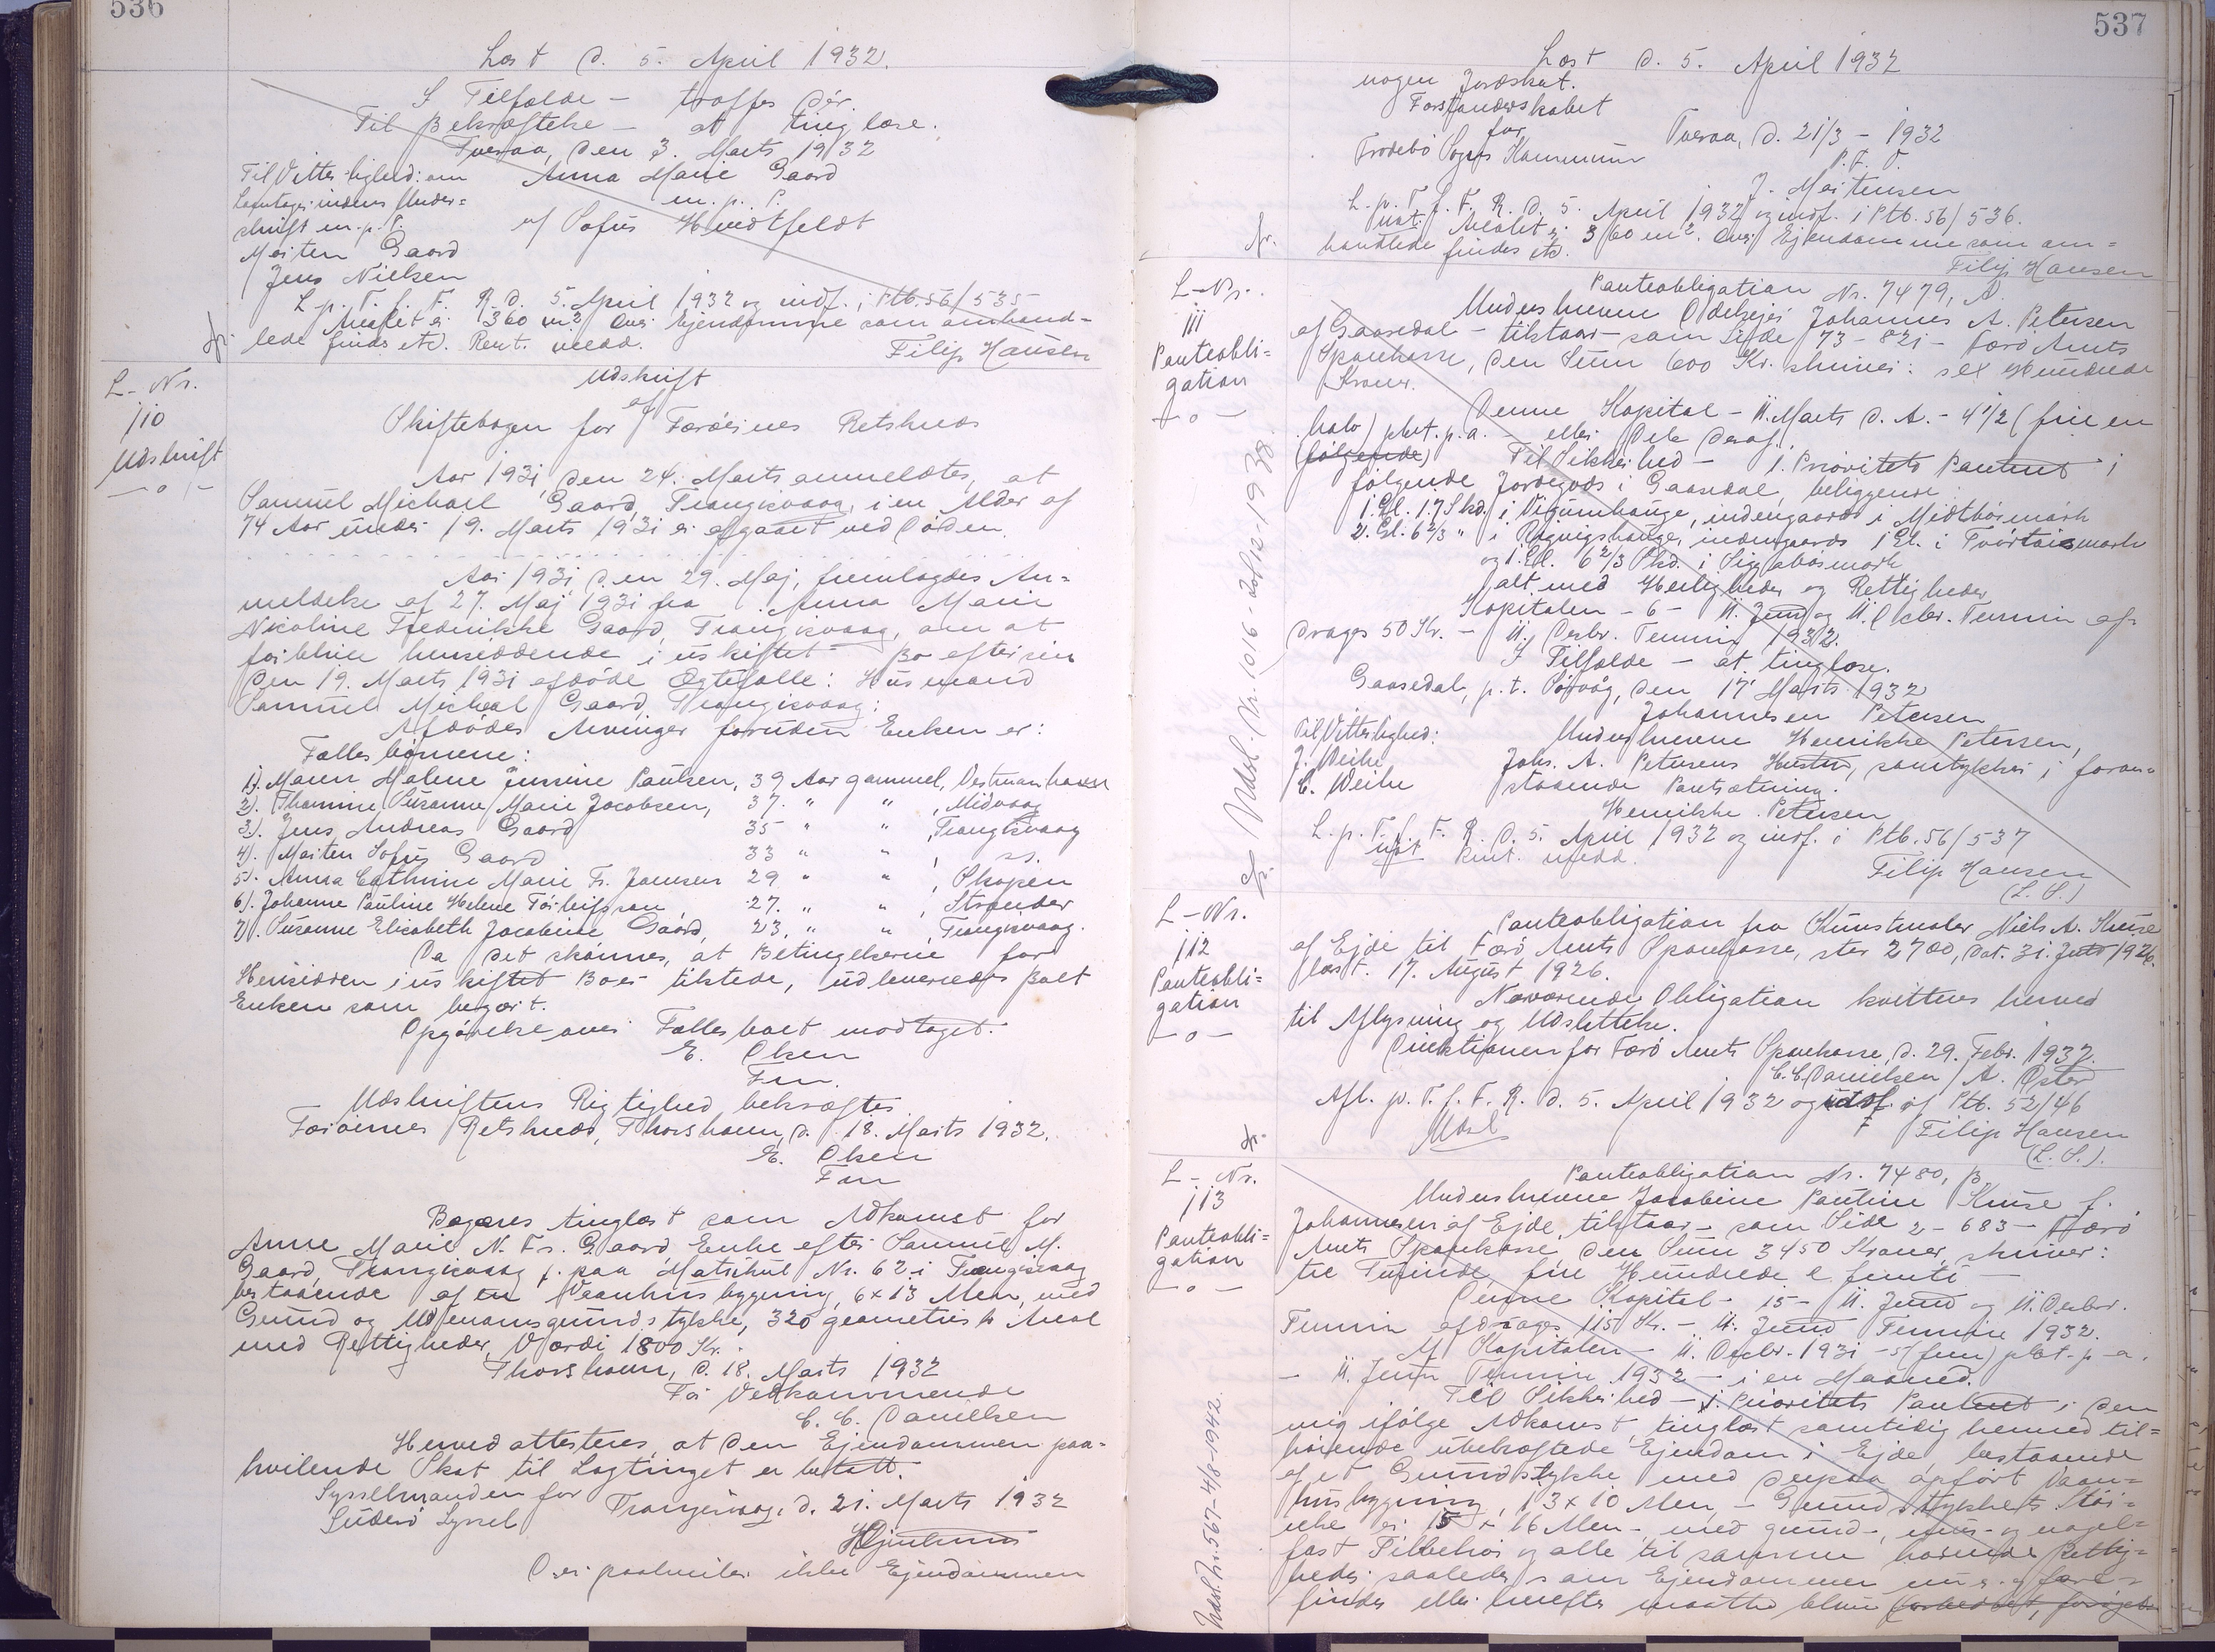 536
Læst d. 5. April 1932.
I Tilfælde — træffes dér.
Til Bekræftelse — at tinglæse.
Tveraa, den 3. Marts 1932
Til Vitterlighed: om
Anna Marie Gaard
m. p. P.
skrift m. p. P.
af Sofus Hentfeldt
Morten Gaard
Jens Nielsen
L. p. T. f. F. R. d. 5. April 1932 og indf. i Ptb. 56/535
Arealet er 360 m². Over Ejendomme som omhand-
lede findes etc. Rent. medd.
Filip Hansen
L-Nr.
110
Udskrift
— o —
Udskrift
af
Skiftebogen for Færøernes Retskreds
Aar 1931, den 24. Marts anmeldtes, at
Samuel Michael Gaard, Trangisvaag, i en Alder af
74 Aar under 19. Marts 1931 er afgaaet ved Døden.
Aar 1931 den 29. Maj, fremlagdes An-
meldelse af 27. Maj 1931 fra Anna Marie
Nicoline Frederikke Gaard, Trangisvaag, om at
forblive hensiddende i uskiftet Bo efter sin
den 19. Marts 1931 afdøde Ægtefælle: Husmand
Samuel Micheal Gaard, Trangisvaag:
Afdødes Arvinger foruden Enken er:
Fællesbørnene:
1). Maren Malene Jussine Paulsen, 39 Aar gammel, Vestmanhavn
2). Thomine Susanne Marie Jacobsen, 37. " " , Midvaag
3). Jens Andreas Gaard 35 " " , Trangisvaag
4). Morten Sofus Gaard 33 " " , ss.
5). Anna Cathrine Marie Fr. Joensen 29 " " , Skopen
6). Johanne Pauline Helene Torleifsson 27. " " , Strender
7). Susanne Elisabeth Jacobine Gaard, 23, " " , Trangisvaag.
Da det skønnes, at Betingelserne for
Hensidden i uskiftet Bo er tilstede, udleveredes Boet
Enken som begært.
Opgørelse over Fællesboet modtaget.
E. Olsen
Fm.
Udskriftens Rigtighed bekræftes
Færøernes Retskreds, Thorshavn, d. 18. Marts 1932.
E. Olsen
Fm
Begæres tinglæst som Adkomst for
Anne Marie N. Fr. Gaard, Enke efter Samuel M.
Gaard, Trangisvaag p. paa Matrikul Nr. 62 i Trangisvaag
bestaaende af en Vaanhusbygning, 6 x 13 Alen, med
Grund og Udenomsgrundstykke, 320 geometrisk Areal
med Rettigheder, Værdi 1800 Kr.
Thorshavn, d. 18. Marts 1932
For Vedkommende
C. C. Danielsen
Herved attesteres, at den Ejendommen paa-
hvilende Skat til Lagtinget er betalt.
Sysselmanden for
Suderø Syssel
Trangisvaag, d. 21. Marts 1932
Der paahviler ikke Ejendommen
537
Læst d. 5. April 1932
nogen Jordskat.
Forstanderskabet
for
Frodebø Sogns Kommune
Tveraa, d. 21/3 – 1932
P. F. V.
J. Mortensen
L. p. T. f. F. R. d. 5. April 1932 og indf. i Ptb. 56/536.
Arealet er 360 m². Over Ejendomme som om-
handlede findes etc.
Filip Hansen
L-Nr.
111
Panteobli-
gation
— o —
Panteobligation Nr. 7479, A.
Underskrevne Odelsejer Johannes A. Petersen
af Gaasedal – tilstaar – som Side 73 – 821 – Færø Amts
Sparekasse, den Sum 600 Kr. skriver: sex Hundrede
Kroner.
Denne Kapital – 11. Marts d. A. – 4 1/2 (fire en
halv) pkt. p. a. – eller Dele deraf.
(følgende) Til Sikkerhed – 1. Prioritets Panteret i
følgende Jordegods i Gaasedal, beliggende:
1. Gl. 17 Skd. i Vigumhauge, indengaards i Midtbørmark
2. Gl. 6 2/3 " i Rognigshauge, indengaards 1 Gl. i Tvørtaismark
og 1 Gl. 6 2/3 Skd. i Siggabøsmark
alt med Herligheder og Rettigheder
Kapitalen – 6 – 11. Juni og 11. Decbr. Termin af-
drages 50 Kr. – 11. Decbr. Termin 1932.
I Tilfælde – at tinglæse.
Gaasedal, p. t. Sørvåg, den 17 Marts 1932
Johannesen Petersen
Til Vitterlighed:
J. Weihe
C. Weihe
Underskrevne Henrikke Petersen,
Johs. A. Petersens Hustru, samtykker i foran-
staaende Pantsætning.
Henrikke Petersen
L. p. T. f. F. R. d. 5. April 1932 og indf. i Ptb. 56/537
Rent. medd.
Filip Hansen
(L. S.)
Udsl. Nr. 1016 – 20/12 – 1938.
L-Nr.
112
Panteobli-
gation
— o —
Panteobligation fra Kunstmaler Niels A. Kruse
af Ejde til Færø Amts Sparekasse, stor 2700, dat. 31. Juli 1926.
læst. 17. August 1926.
Nærværende Obligation kvitteres herved
til Aflysning og Udslettelse.
Direktionen for Færø Amts Sparekasse, d. 29. Febr. 1932.
C. C. Danielsen / A. Oster
Afl. p. T. f. F. R. d. 5. April 1932 og udsl. af Ptb. 52/46
Udsl
Filip Hansen
(L. S.).
L-Nr.
113
Panteobli-
gation
— o —
Panteobligation Nr. 7480, B
Underskrevne Jacobine Pauline Kruse f.
Johannesen af Ejde, tilstaar – som Side 2 – 683 – Færø
Amts Sparekasse, den Sum 3450 Kroner, skriver:
tre Tusinde, fire Hundrede & femti —
Denne Kapital – 15 – 11. Juni og 11. Decbr.
Termin afdrages 115 Kr. – 11. Juni Termine 1932.
Af Kapitalen – 11. Decbr. 1931 – 5 (fem) pkt. p – a.
– 11. Juni Termin 1932 – i en Maaned.
Til Sikkerhed – 1. Prioritets Panteret i den
mig ifølge Adkomst, tinglæst samtidig hermed til-
hørende ubehæftede Ejendom i Ejde, bestaaende
af et Grundstykke med derpaa opført Vaan-
husbygning, 13 x 10 Alen, – Grundstykkets Stør-
relse er 15 x 16 Alen – med grund-, mur- og nagel-
fast Tilbehør og alle til samme hørende Rettig-
heder saaledes som Ejendommen nu
findes eller herefter maatte blive forbedret, forøget
Udsl. Nr. 567 – 4/8 – 1942.